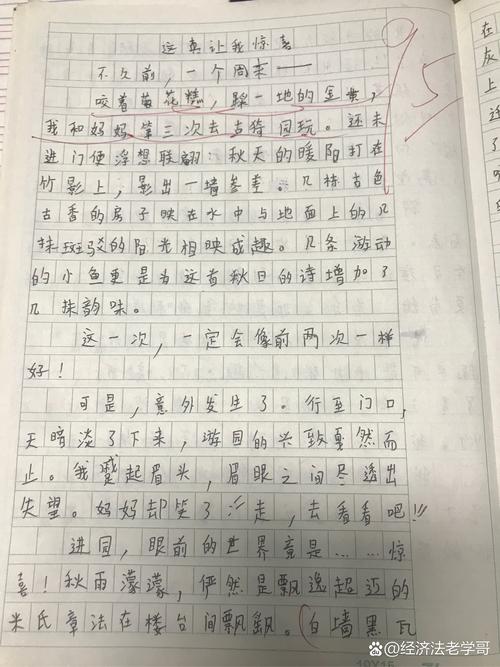 这真让我惊喜
不久前，一个周末——
咬着花糕，踩一地的金黄，
我和妈妈第三次去古猗园玩。还未
进门便浮想联翩：秋天的暖阳打在
竹影上，影出一墙参差。几栋古色
古香的房子映在水中与地面上的几
抹斑驳的阳光相映成趣。几条游动
的小鱼更是为这首秋日的诗增加了
几抹韵味。
这一次，一定会像前两次一样
好！
可是，意外发生了。行至门口，
天暗淡了下来，游园的兴致戛然而
止。我蹙起眉头，眉眼之间尽透出
失望。妈妈却笑了：“走，去看看吧！”
进园，眼前的世界竟是……惊
喜！秋雨濛濛，俨然是飘逸超迈的
米氏章法在楼台间飘飘。白墙黑瓦
5
在
灰
上
@经济法老学哥